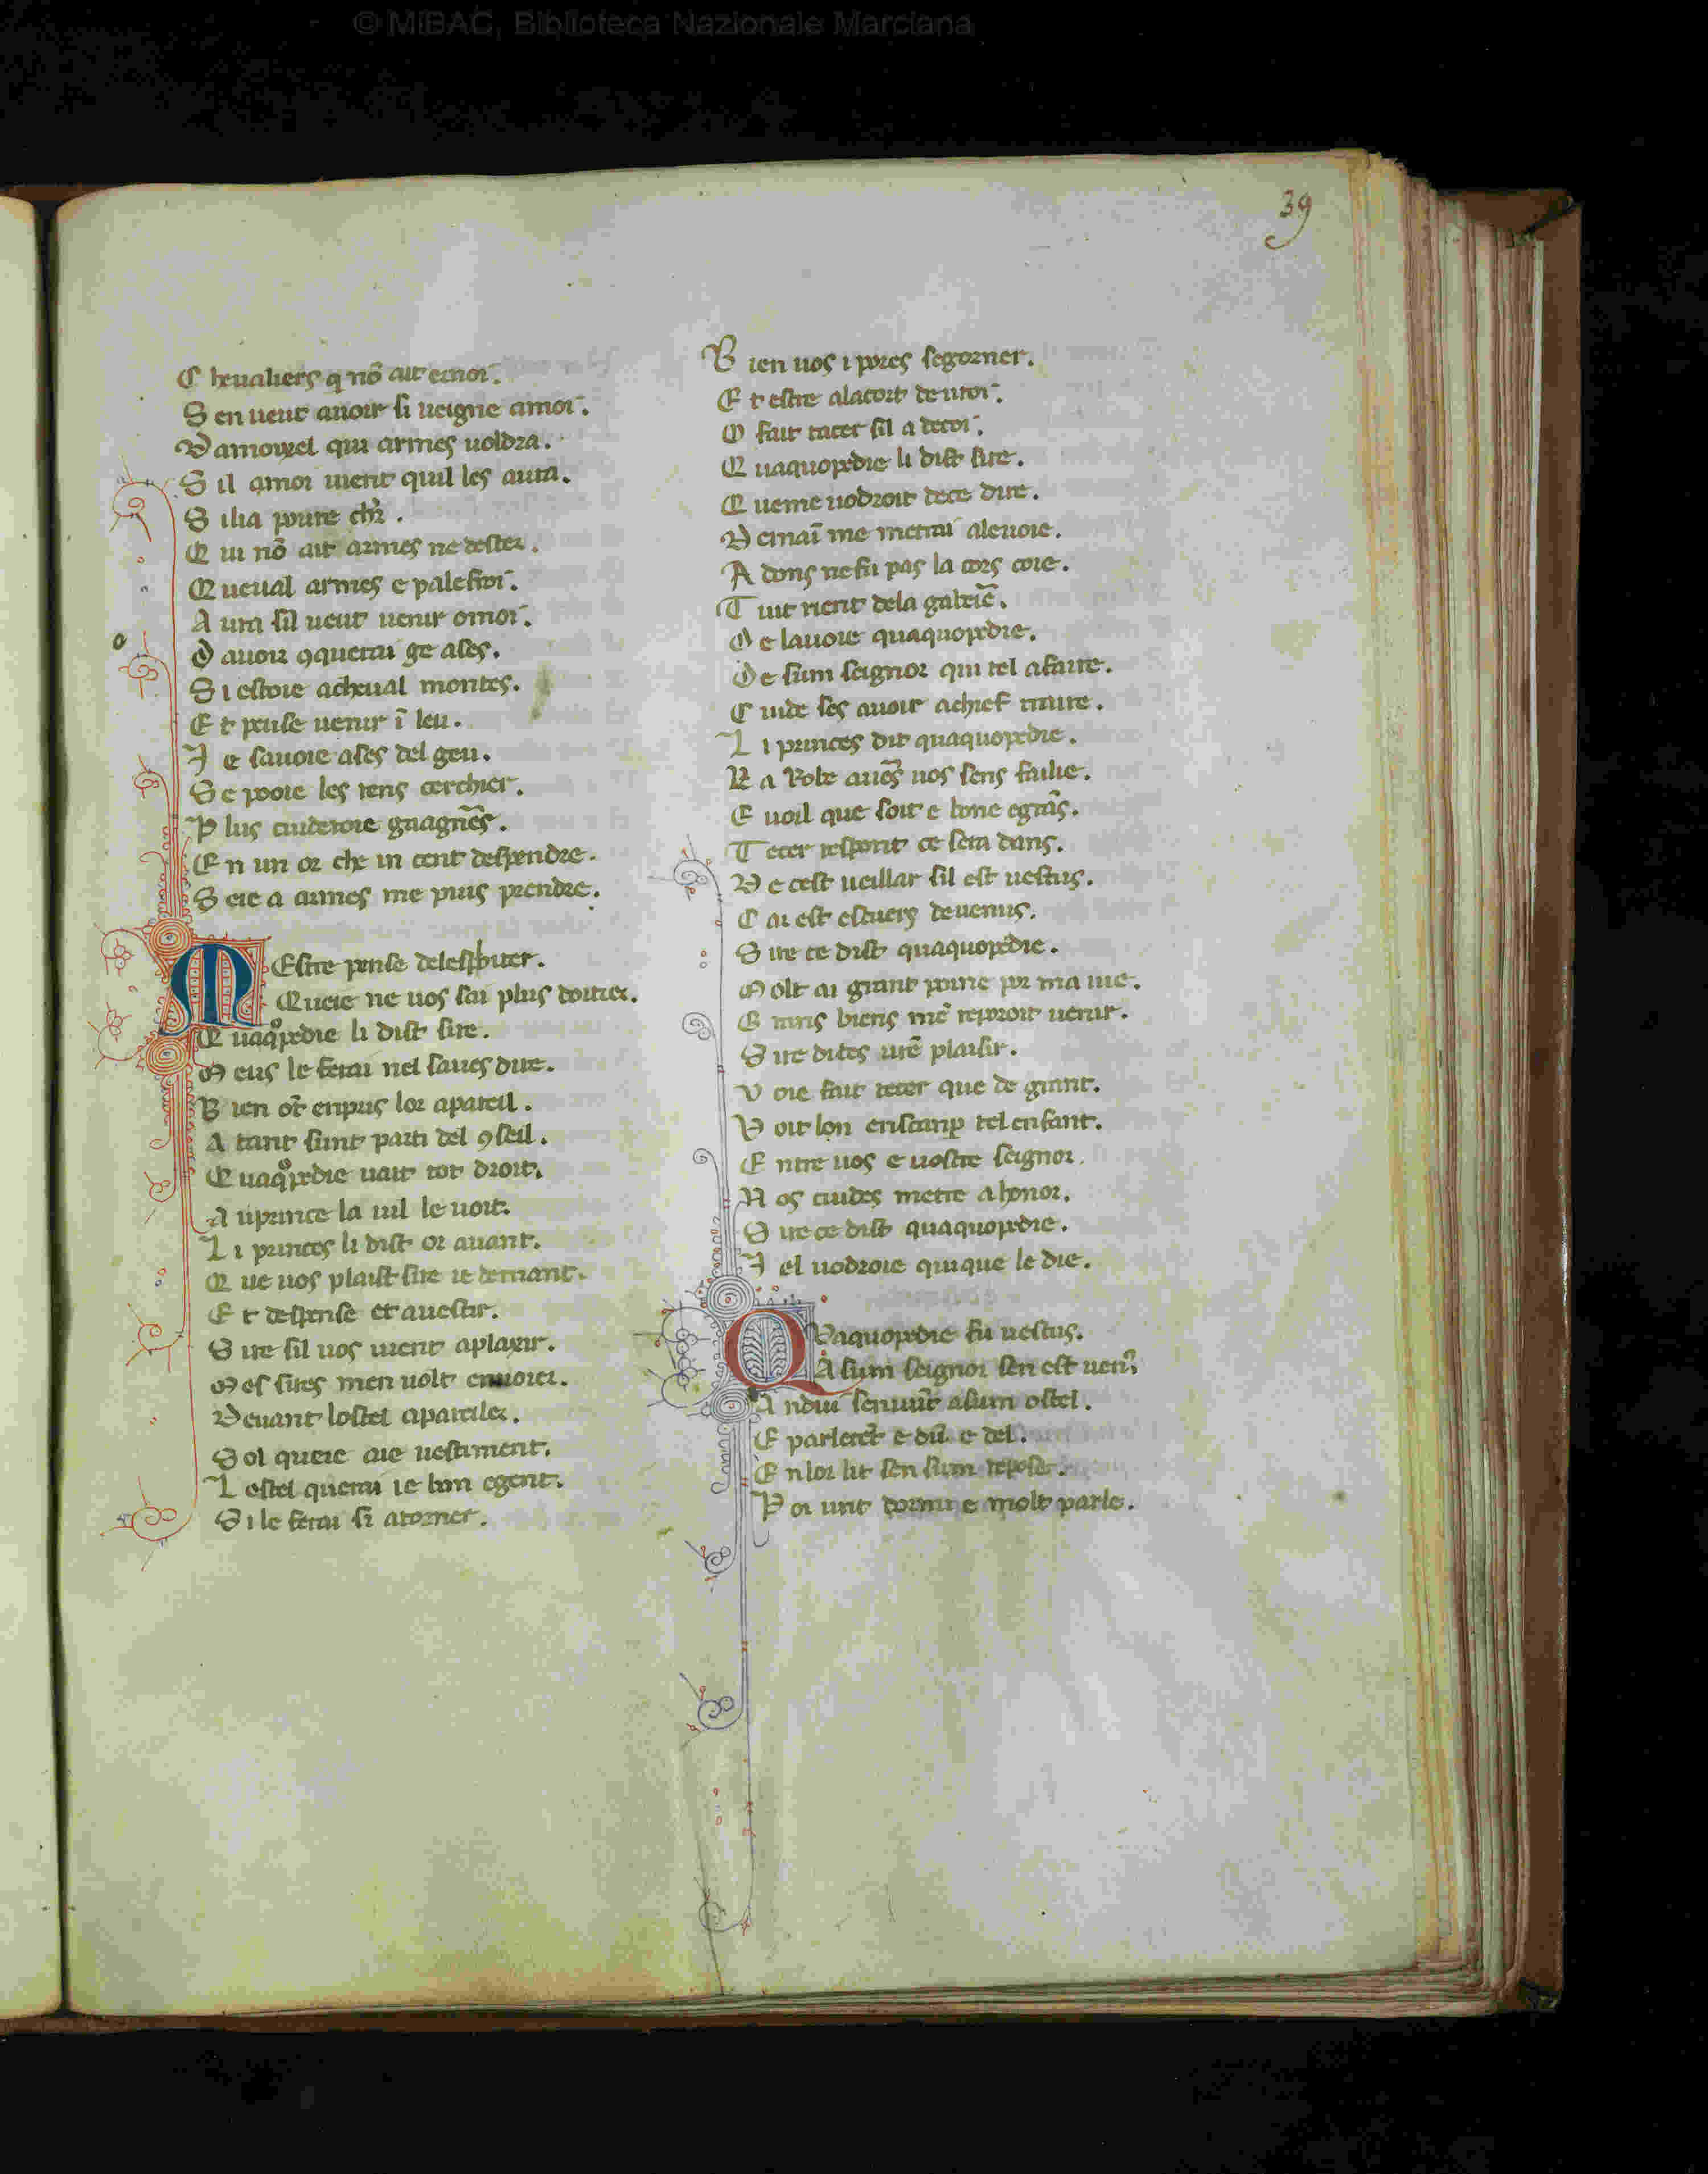 © MiBAC, Biblioteca Nazionale Marciana
39
C heualiers q nō ait emoi.
S en ueut auoir si ueigne amoi.
D amoisel qui armes uoldra.
S il amoi uient quil les aura.
S ilia poure chr̄.
Q ui nō ait armes ne destrer.
Q ueual armes e palefroi.
A ura sil ueut uenir omoi.
D auoir ꝯquerai ge ases.
S i estoie acheual montes.
E t peuse uenir ī leu.
J e sauoie ases del geu.
S e pooie les rens cerchier.
P lus cuideroie guagnēs.
E n un or che in cent despendre.
S eie a armes me puis prendre.
M Estre pense delesploiter.
Queie ne uos sai plus doitrer.
Q uaqͦpedie li dist sire.
M eus le ferai nel saues dire.
B ien ot̄ enpris lor apareil.
A tant sunt parti del ꝯseil.
Q uaqͦpedie uait tot droit.
A uprince la uil le uoit.
L i princes li dist or auant.
Q ue uos plaist sire ie demant.
E t despense et auestir.
S ire sil uos uient aplaxir.
M es sires men uolt enuoier.
D euant lostel apareiler.
S ol queie aie uestiment.
L ostel querai ie bon egent.
S i le ferai si atorner.
B ien uos i pores segorner.
E t estre alacort deuroi.
O fait tacer sil a decoi.
Q uaquopedie li dist sire.
Q ueme uodroit dece dire.
D emaī me metrai aleuoie.
A dons nefu pas la cors coie.
T uit rient dela gabrie.
D e lauoie quaquopedie.
D e sum seignor qui tel afaire.
C uide ses auoir achief traire.
L i princes dit quaquopedie.
L a Robe aues uos sens failie.
E uoil que soit e bone egrās.
T ecer respont ce sera dans.
D e cest ueillar sil est uestus.
C ar est escuers deuenus.
S ire ce dist quaquopedie.
M olt ai grant poine por ma uie.
G rans biens mē reporoit uenir.
S ire dites urē plaisir.
V oie fait tecer que de grant.
V oit lon enscamp tel enfant.
E ntre uos e uostre seignor.
N os cuides metre ahonor.
S ire ce dist quaquopedie.
J el uodroie quique le die.
Q Vaquopedie fu uestus.
A sum seignor sen est uenꝰ.
A ndui senuūt asum ostel.
E parlerēt e dū e del.
E nlor lit sen sum reposé.
P oi unt dormi e molt parle.